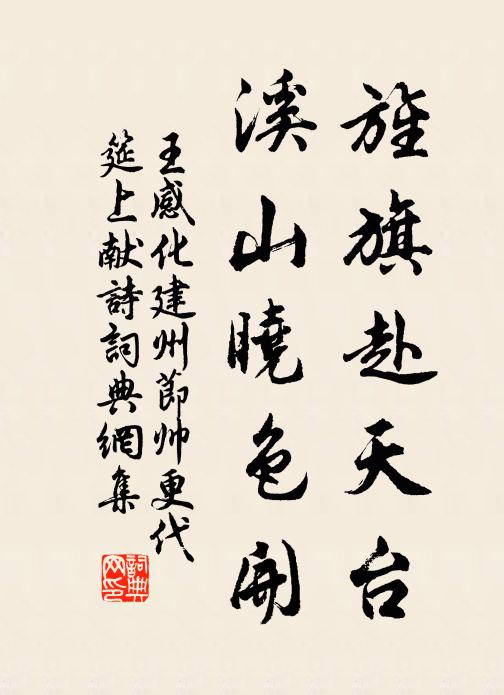 旌旗赴天台
溪山曉色開
王感化建州節帅更代
筵上献詩詞典網集
詞典网印